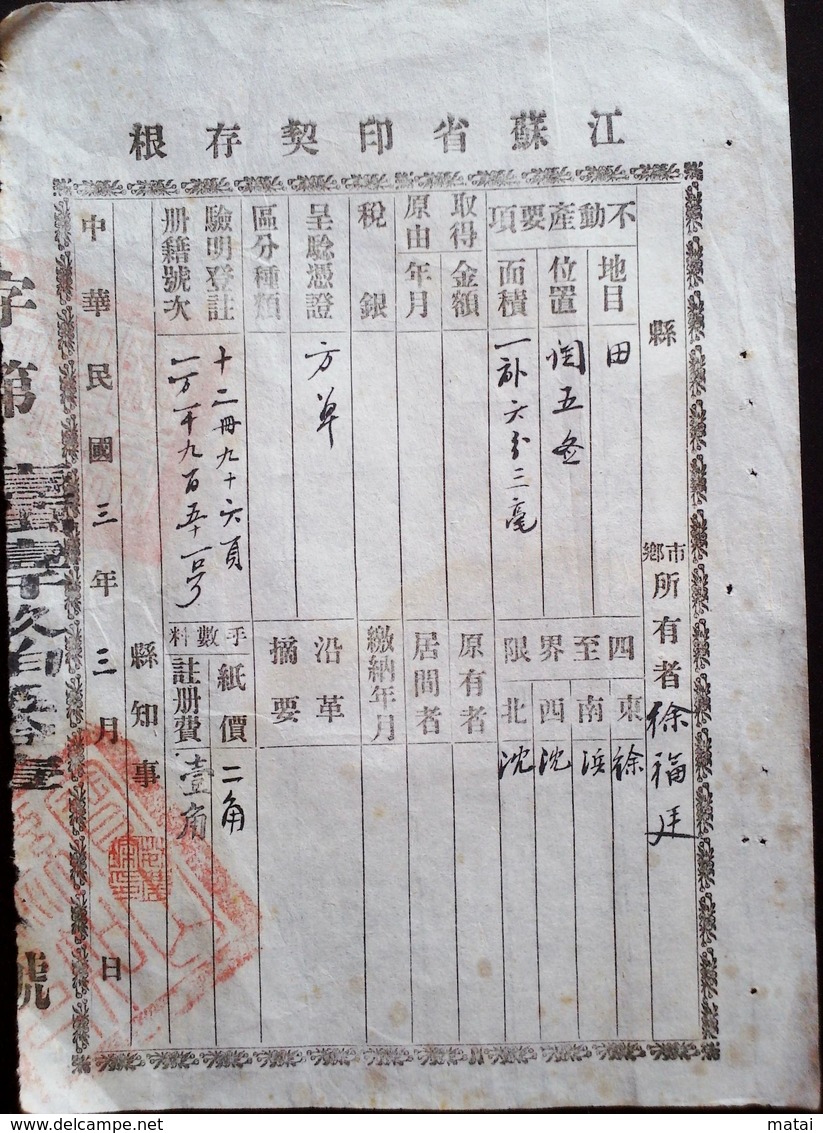 江蘇省印契存根
縣 市鄉 所有者 徐福廷
不動產要項
地目 田
位置 五
面積 一 六分三毫
四至界限
東 徐
南 浜
西 沈
北 沈
取得原由
金額
年月
原有者
居間者
稅銀
繳納年月
呈驗憑證 方單
沿革摘要
區分種類
驗明登註冊籍號次
十二冊九十六頁
一万一千九百五十一号
手數料
紙價 二角
註册費 壹角
縣知事
中華民國三年三月 日
字第 壹 壹千玖百五拾壹 號
matai